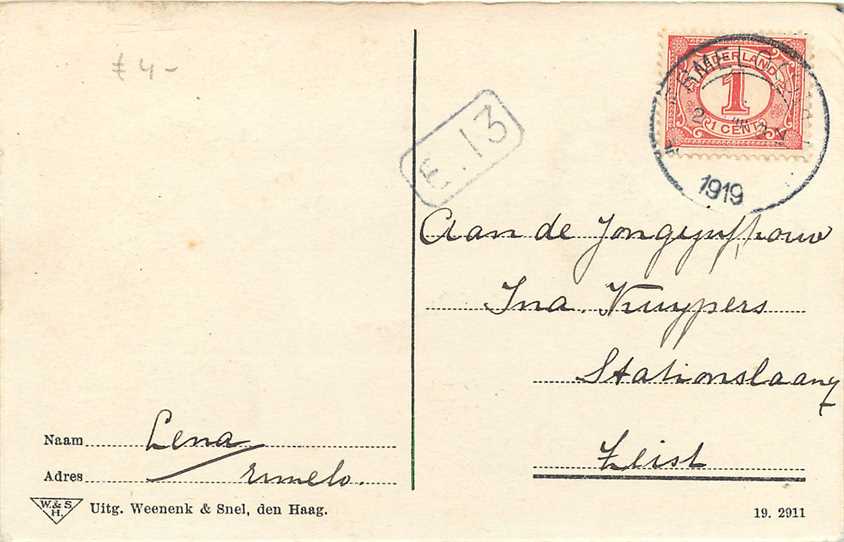 £ 4-
E. 13
NEDERLAND
1
1 CENT
ERMELO
1919
Aan de Jongejuffrouw
Ina. Kuypers
Stationslaan
Zeist
Naam Lena
Adres Ermelo.
W. & S.
H.
Uitg. Weenenk & Snel, den Haag.
19. 2911